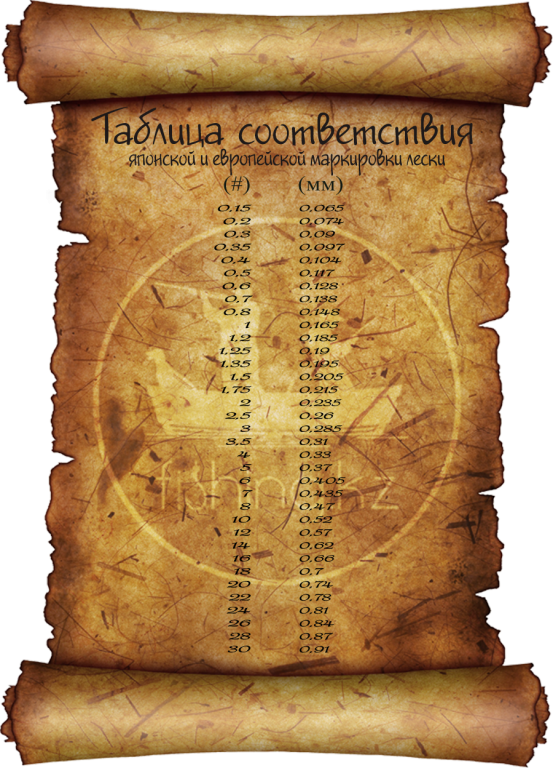 Таблица соответствия
японской и европейской маркировки лески
(#) (мм)
0,15 0,065
0,2 0,074
0,3 0,09
0,35 0,097
0,4 0,104
0,5 0,117
0,6 0,128
0,7 0,138
0,8 0,148
1 0,165
1,2 0,185
1,25 0,19
1,35 0,195
1,5 0,205
1,75 0,215
2 0,235
2,5 0,26
3 0,285
3,5 0,31
4 0,33
5 0,37
6 0,405
7 0,435
8 0,47
10 0,52
12 0,57
14 0,62
16 0,66
18 0,7
20 0,74
22 0,78
24 0,81
26 0,84
28 0,87
30 0,91
fishing.kz